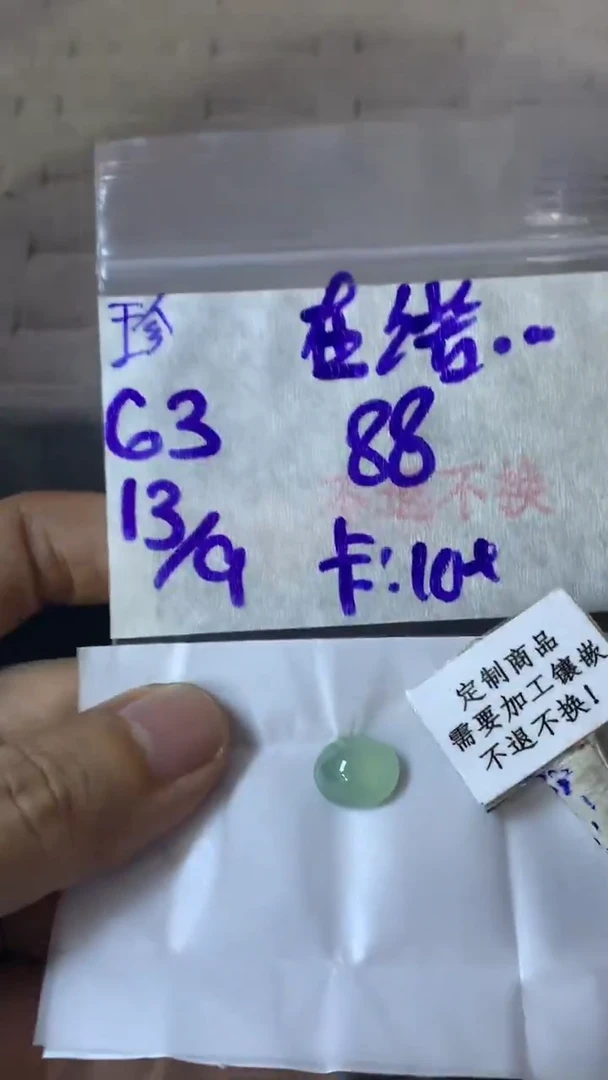 珍
63
13/9
在绪..
88
不退不换
卡:10+
定制商品
需要加工镶嵌
不退不换!